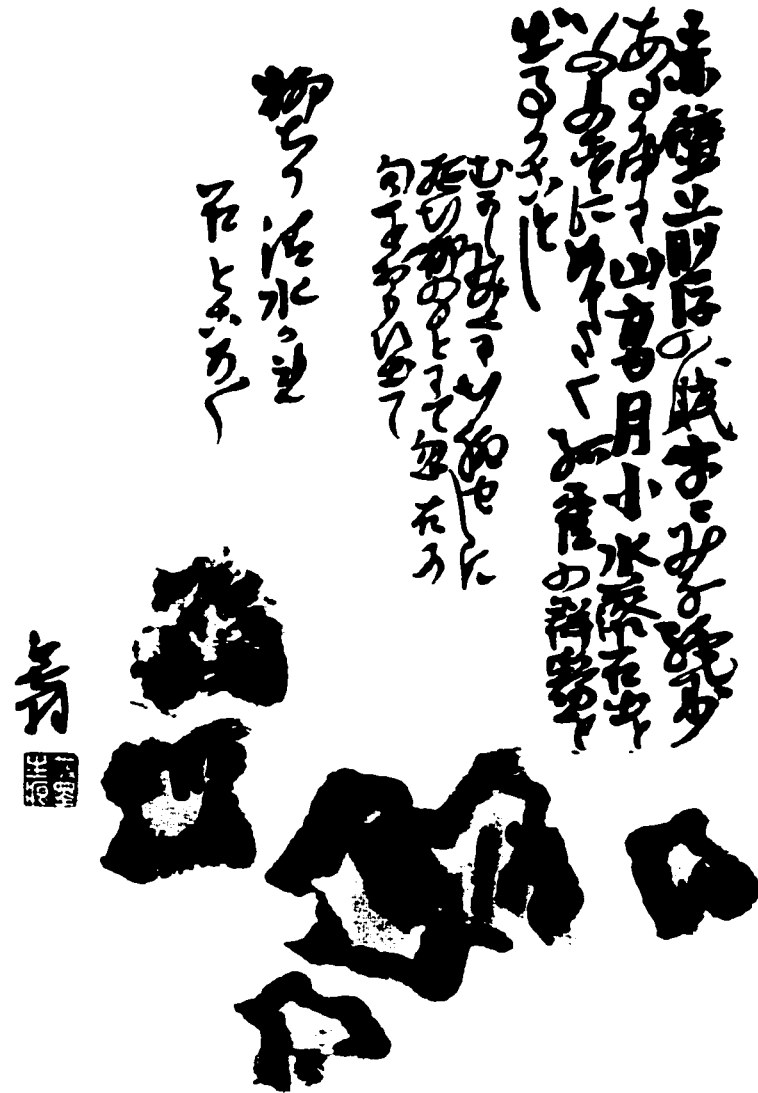 赤壁前後の賦字々みな絶妙
あるか中に山高月小水落石出と
いふものことにめてたく孤霍の群鶏を
出るかことし
むかしみちのく行脚せしに
遊行柳のもとにて忽右の
句をおもひ出て
柳ちり清水かれ
石ところ〳〵